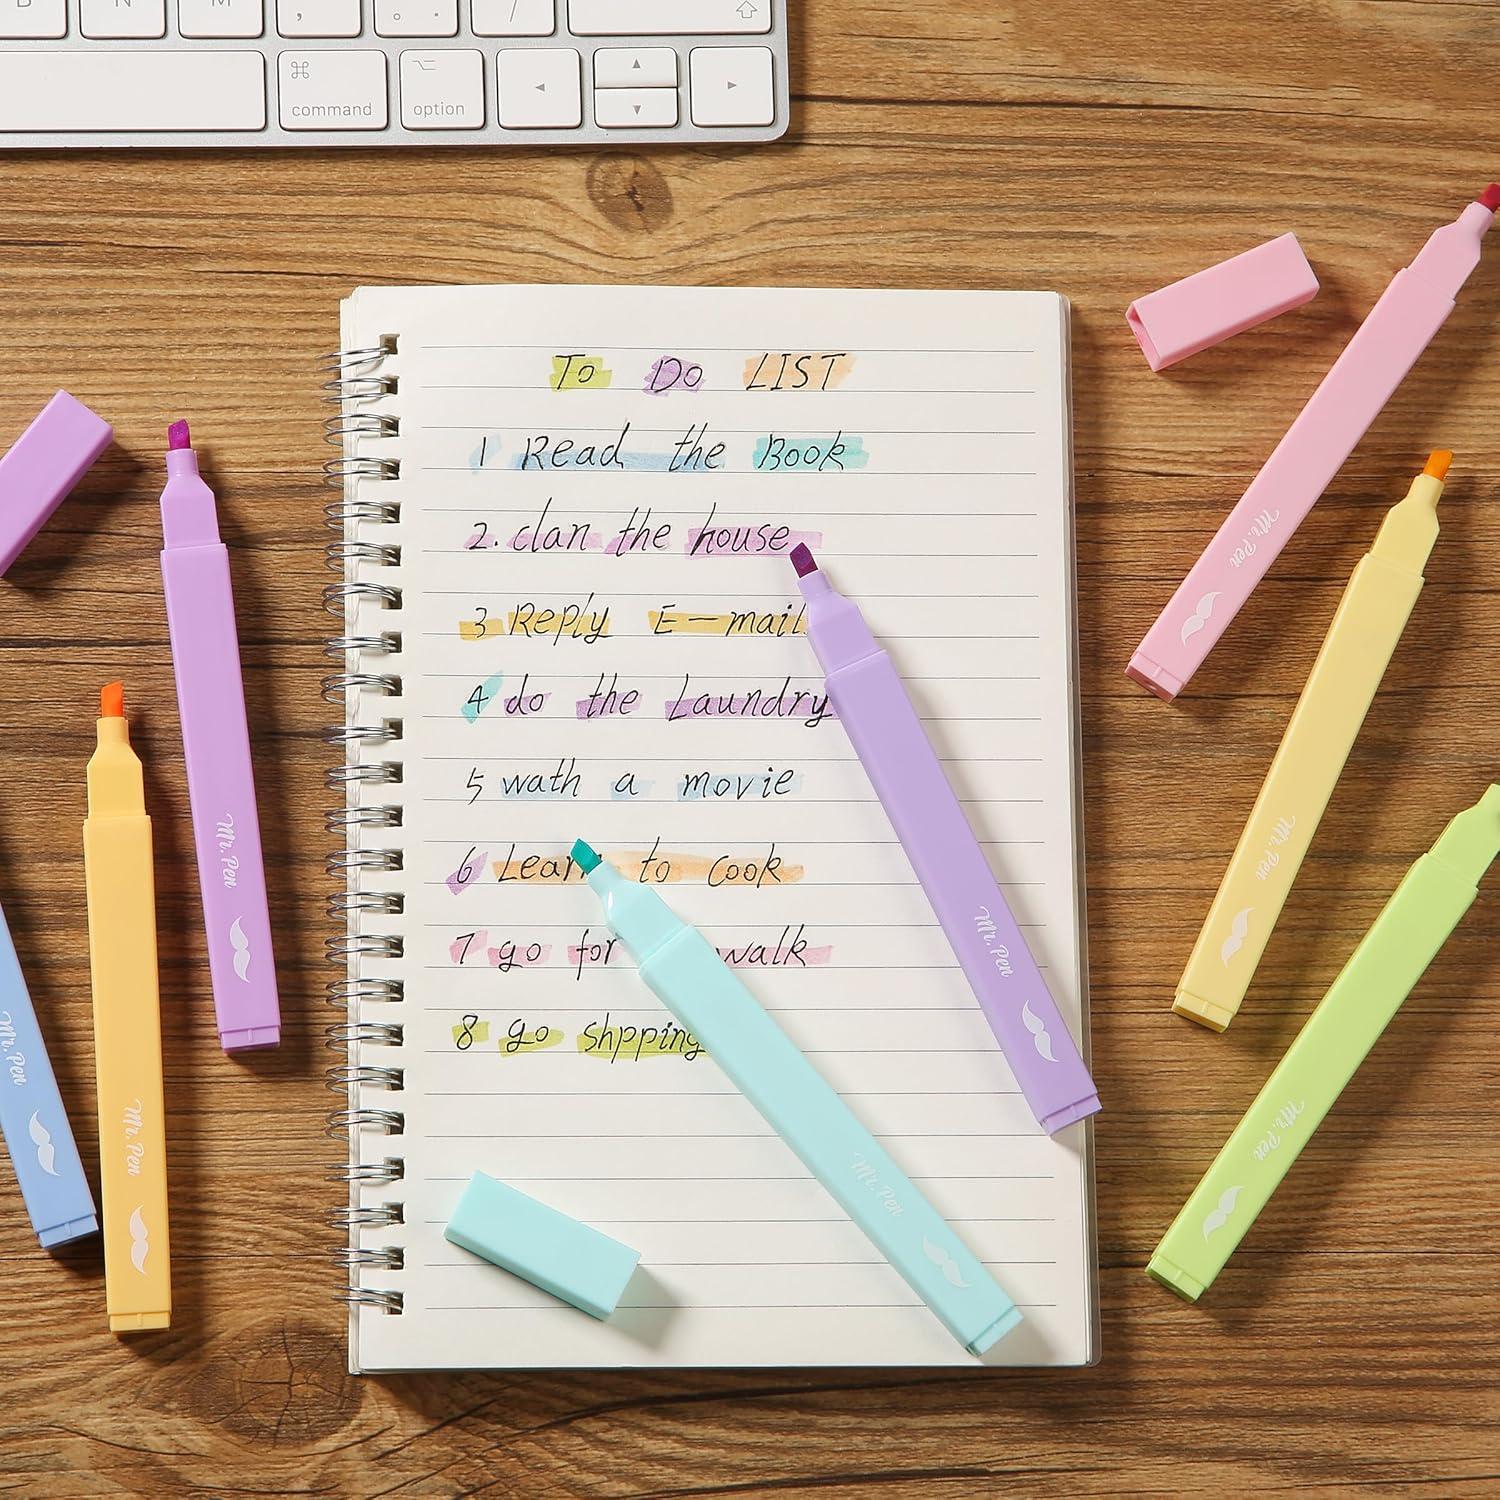 B N M , . /
⌘ command ⌥ option ◂ ▴ ▾ ▸ ⇧
To Do LIST
1 Read the Book
2. clan the house
3 Reply E-mail
4 do the Laundry
5 wath a movie
6 Learn to cook
7 go for walk
8 go shpping
Mr. Pen
Mr. Pen
Mr. Pen
Mr. Pen
Mr. Pen
Mr. Pen
Mr. Pen
Mr. Pen